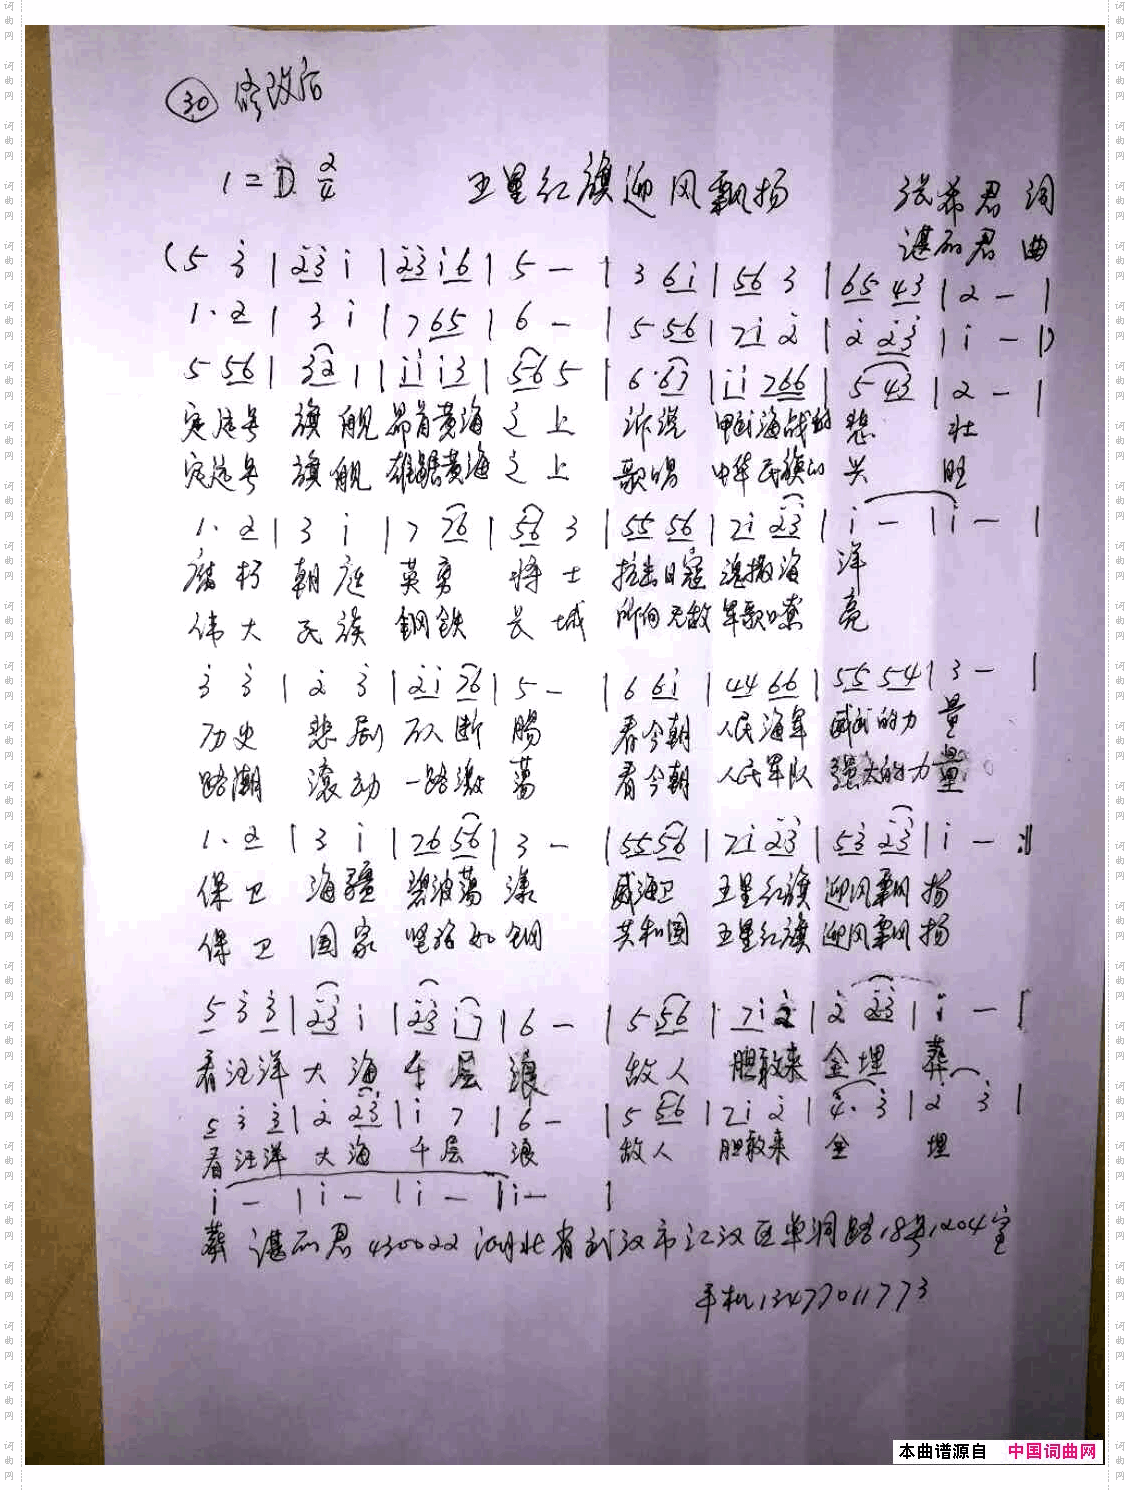 30 修改后
1=D 2/4 五星红旗迎风飘扬 张希君 词
谌丽君 曲
(5 3̇ | 2̇3̇ i | 2̇3̇ i6 | 5 — | 3 6i | 56 3 | 65 43 | 2 — |
1· 2 | 3 i | 7 65 | 6 — | 5 56 | 7i 2̇ | 2̇ 2̇3̇ | i — |)
5 56 | 32 1 | ii i3 | 56 5 | 6·67 | ii 766 | 5 43 | 2 — |
定远号 旗舰 昂首黄海之上 诉说 甲午海战的 悲 壮
定远号 旗舰 雄踞黄海之上 歌唱 中华民族的 兴 旺
1· 2 | 3 i | 7 76 | 56 3 | 55 56 | 7i 2̇3̇ | i — | i — |
腐朽 朝廷 英勇 将士 抗击日寇 魂撒海 洋
伟大 民族 钢铁 长城 所向无敌 军歌嘹 亮
3̇ 3̇ | 2̇ 3̇ | 2̇i 76 | 5 — | 6 6i | 44 66 | 55 54 | 3 — |
历史 悲剧 断 肠 看今朝 人民海军 威武的力量
滚动 一路激 荡 看今朝 人民军队 强大的力量
1· 2 | 3 i | 76 56 | 3 — | 55 56 | 7i 2̇3̇ | 53̇ 2̇3̇ | i — :||
保卫 海疆 碧波荡漾 威海卫 五星红旗 迎风飘扬
保卫 国家 坚强如钢 共和国 五星红旗 迎风飘扬
5 3̇ 3̇ | 2̇3̇ i | 2̇3̇ i7 | 6 — | 5 56 | 7i 2̇ | 2̇ 2̇3̇ | i — |
看汪洋 大海 千层 浪 敌人 胆敢来 全埋 葬
5 3̇ 3̇ | 2̇ 2̇3̇ | i 7 | 6 — | 5 56 | 7i 2̇ | 4̇· 3̇ | 2̇ 3̇ |
看汪洋 大海 千层 浪 敌人 胆敢来 全 埋
i — | i — | i — | i — |
葬 谌丽君 430022 湖北省武汉市江汉区单洞路18号1204室
手机13477011773
本曲谱源自 中国词曲网